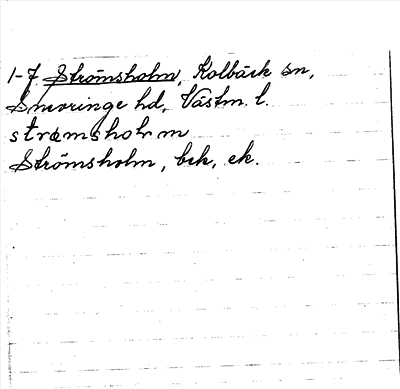 1-7 Strömsholm, Kolbäck sn,
Snevringe hd, Västm. l.
strömsholm
Strömsholm, bek, ek.